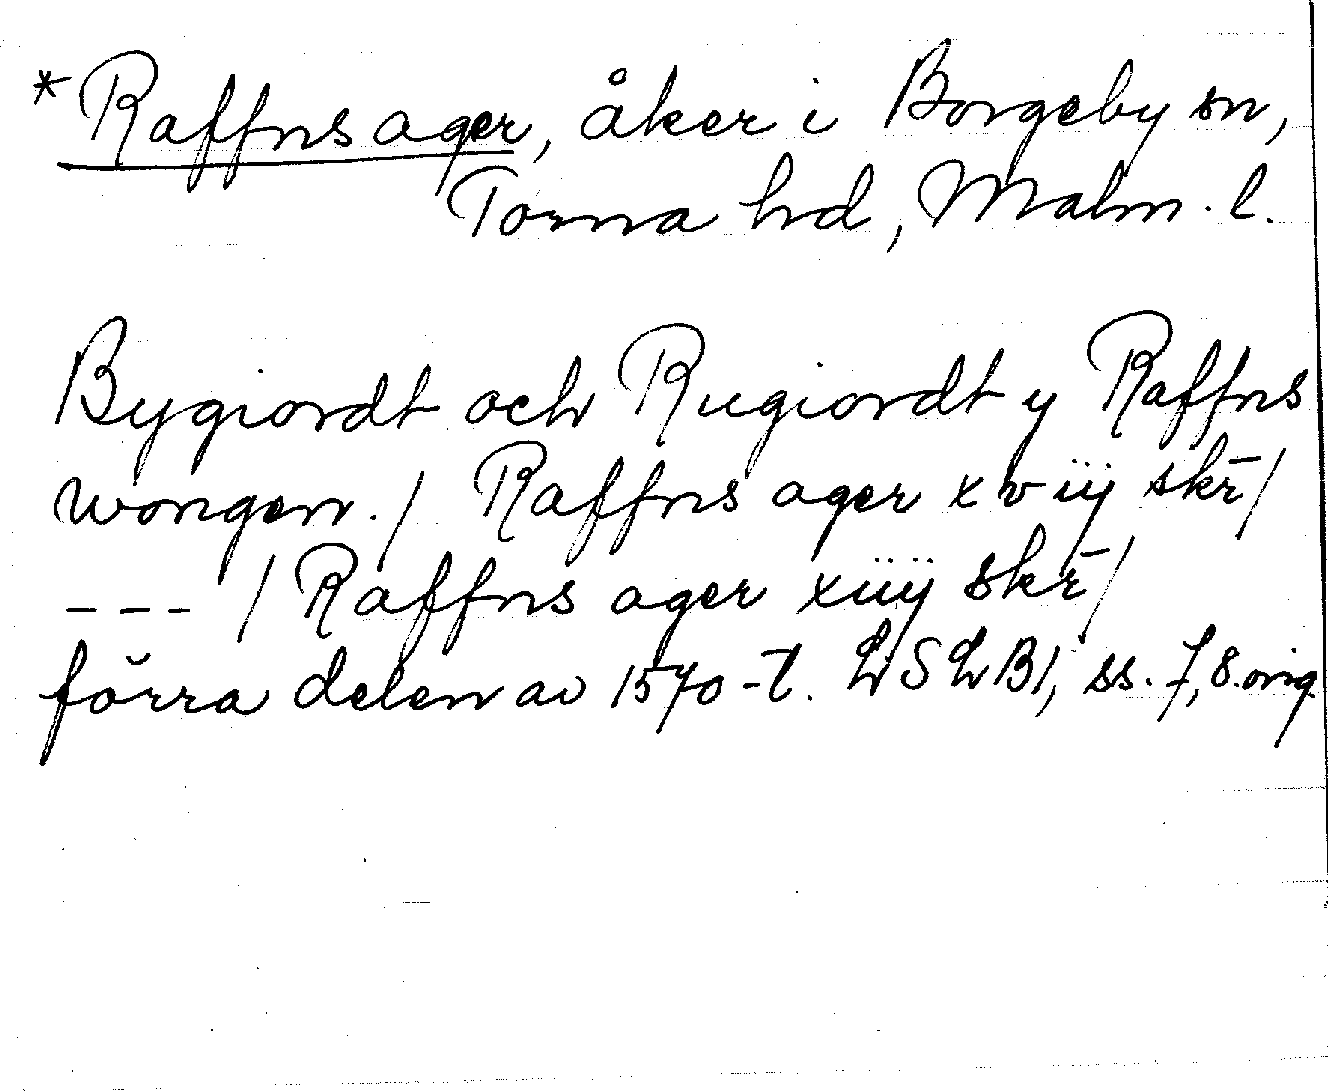 *Raffns ager, åker i Borgeby sn,
Torna hd, Malm. l.
Bygiordt och Rugiordt y Raffns
wongen. / Raffns ager xviij skr̄ /
--- / Raffns ager xiiij skr̄ /
förra delen av 1570-t. LSLB1, ss. 7, 8. orig.